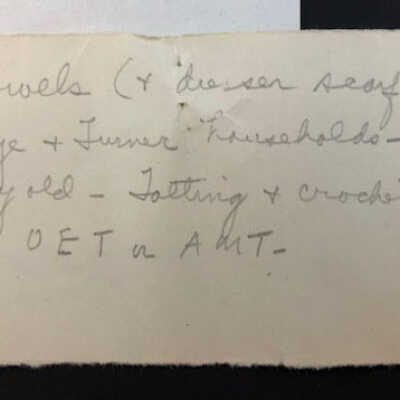 wels (+ dresser scarf
ge + Turner households -
y old - Tatting + croche
O E T or A M T -